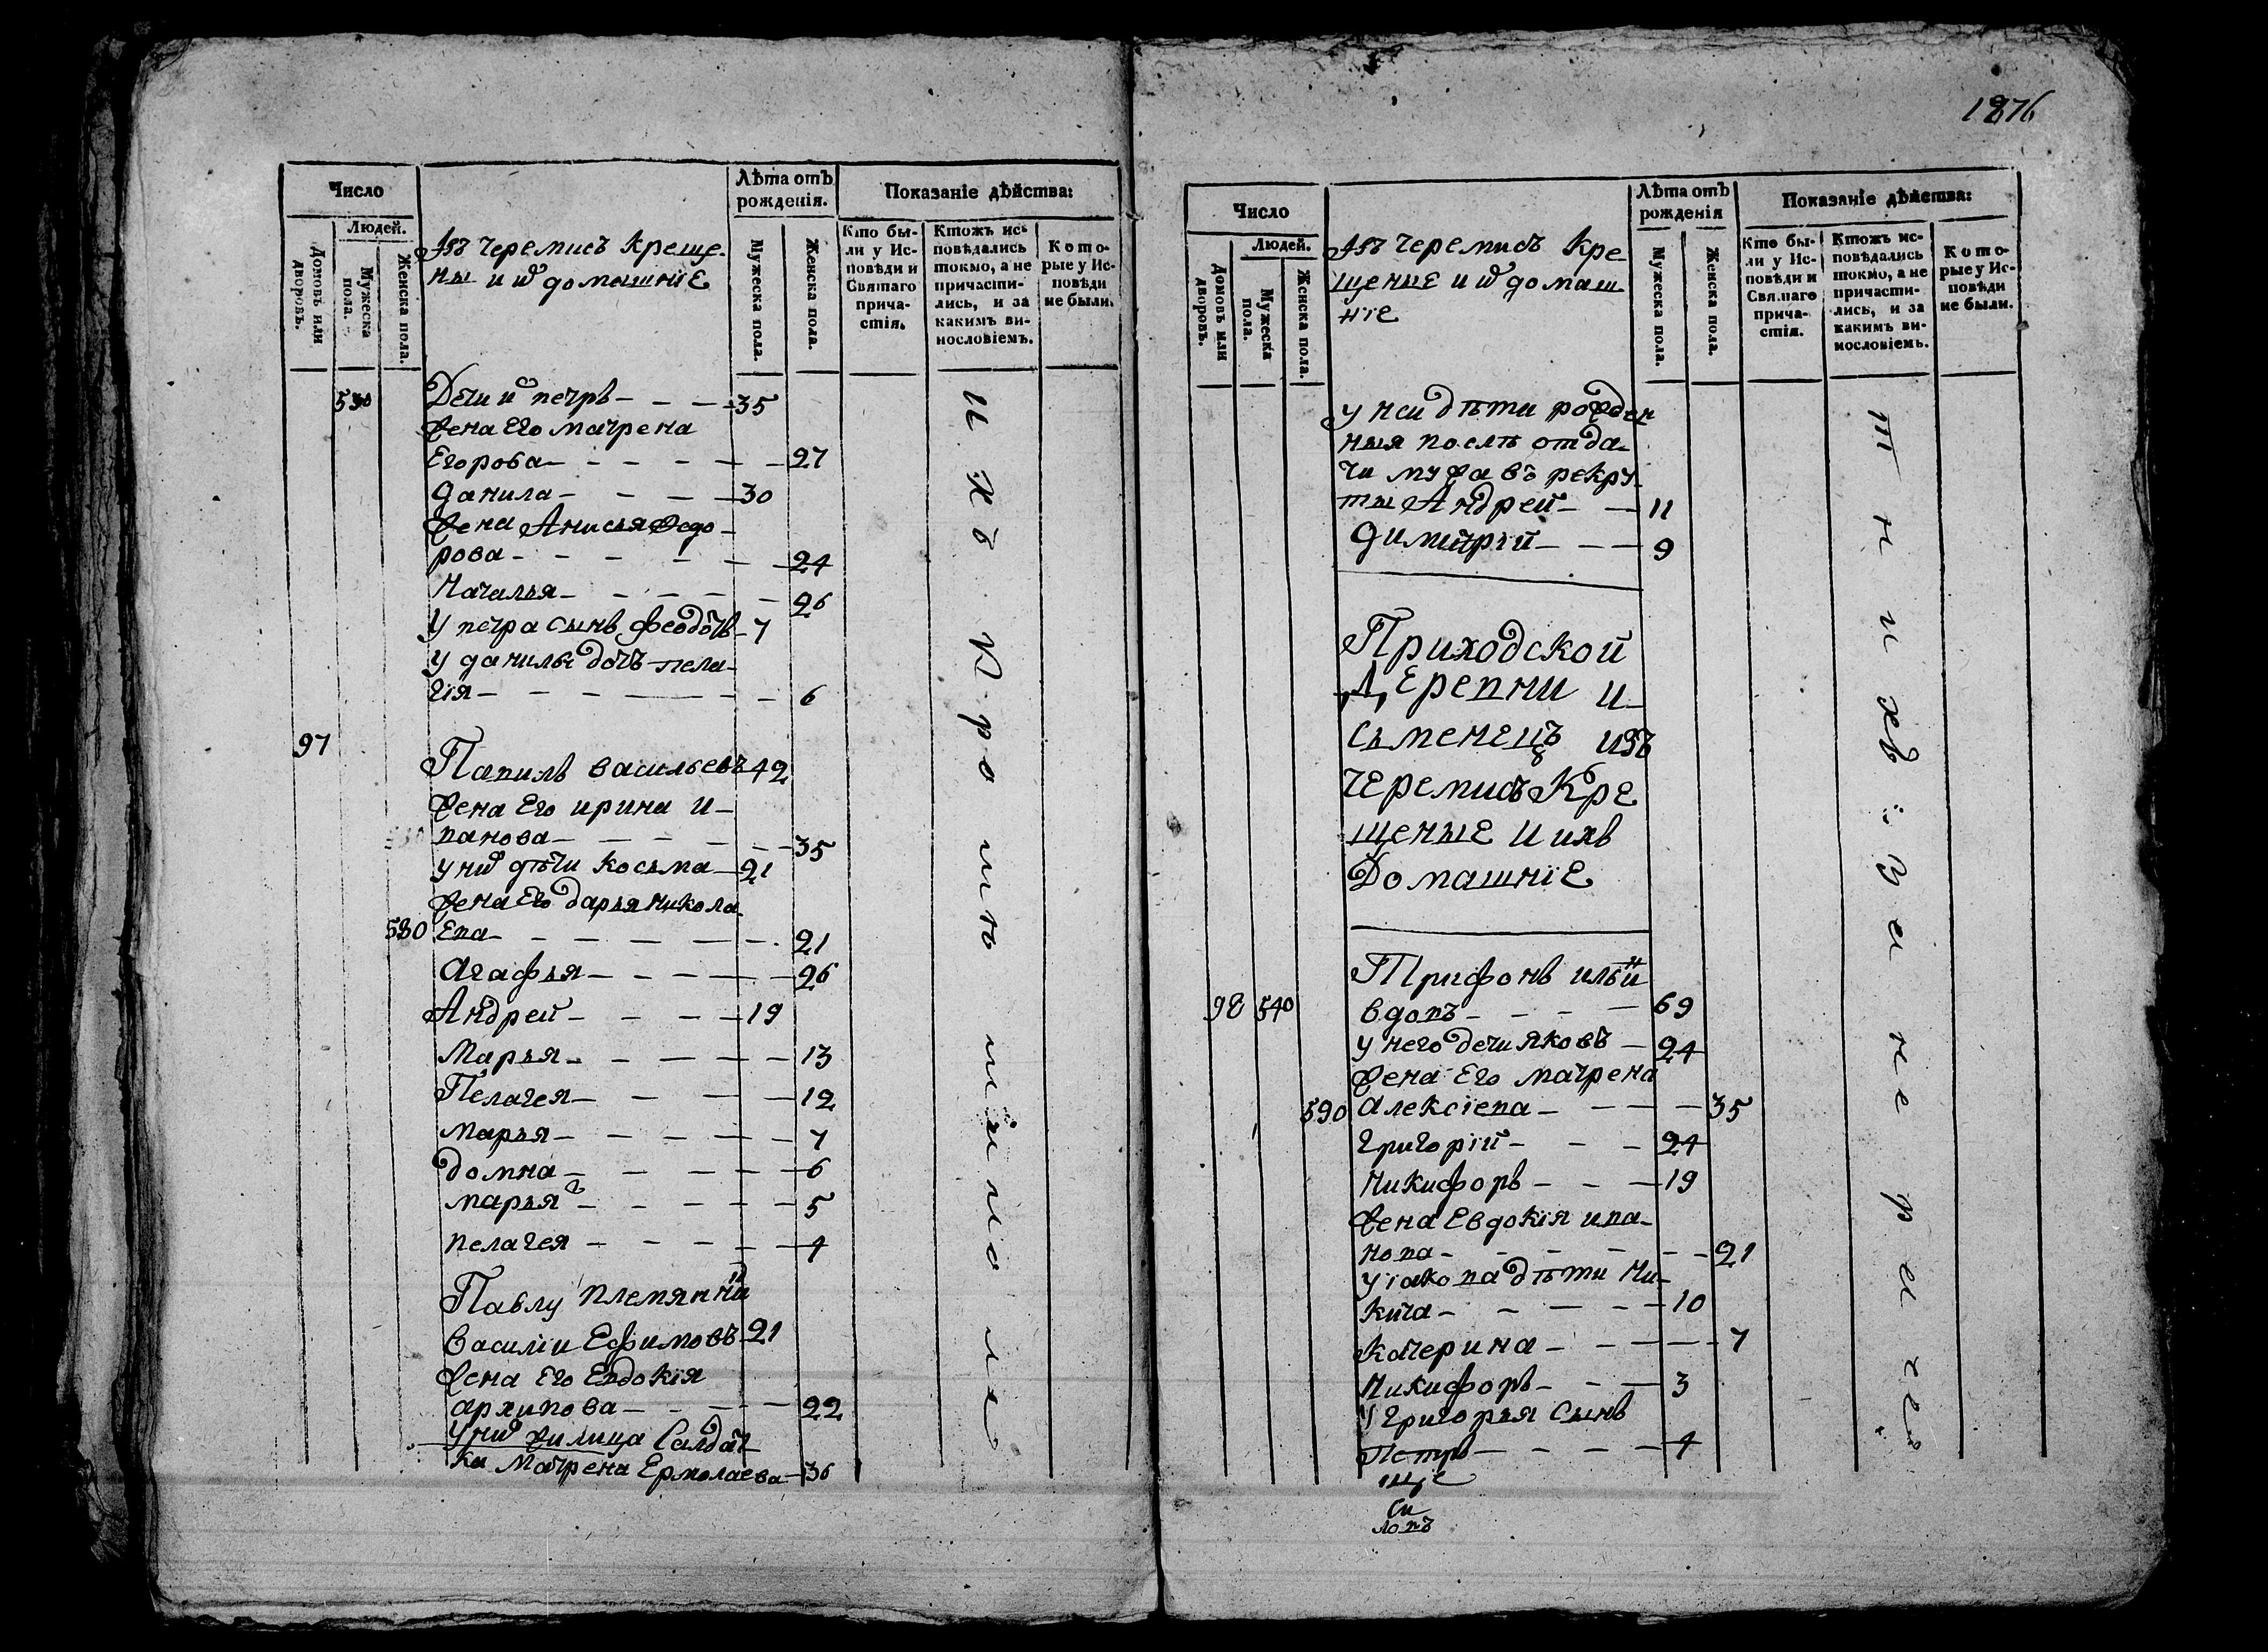 Число
Людей.
Домовъ или дворовъ.
Мужеска пола.
Женска пола.
Изъ черемисъ креще-
ны и ихъ домашнїе
Лѣта отъ рожденія.
Мужеска пола.
Женска пола.
Показаніе дѣйства:
Кто бы-
ли у Ис-
повѣди и
Святаго
прича-
стія.
Ктожъ ис-
повѣдались
токмо, а не
причасти-
лись, и за
какимъ ви-
нословіемъ.
Кото-
рые у Ис-
повѣди
не были.
530 Дети петръ 35
жена Его матрена
Егорова 27
данила 30
жена Анисья Федо-
рова 24
Наталья 26
у петра сынъ феодотъ 7
у данилы дочь пела-
гїя 6
97
васильевъ 42
жена Его ирина и-
ванова 35
у них дѣти косьма 21
жена Его дарья никола-
580 Ева 21
агафья 26
Андрей 19
Марья 13
Пелагея 12
Марья 7
домна 6
марья 5
пелагея 4
Павлу племянни
василїи Ефимовъ 21
жена Его Евдокїя
архипова 22
у них жилица Салдат
ка Матрена Ермолаева 36
1276
Число
Людей.
Домовъ или дворовъ.
Мужеска пола.
Женска пола.
Изъ черемисъ кре-
щеные и ихъ домаш
нїе
Лѣта отъ рожденія
Мужеска пола.
Женска пола.
Показаніе дѣйства:
Кто бы-
ли у Ис-
повѣди и
Святаго
прича-
стія.
Ктожъ ис-
повѣдались
токмо, а не
причасти-
лись, и за
какимъ ви-
нословіемъ.
Кото-
рые у Ис-
повѣди
не были.
у неи дѣти рожден
ныя послѣ отда-
чи мужа въ рекру-
ты Андрей 11
димитрїй 9
Приходской
Деревни и-
сьменецъ изъ
черемисъ Кре
щеные и ихъ
Домашнїе
Трифонъ ильи
98 540 вдовъ 69
у него дети яковъ 24
жена Его матрена
590 алексїева 35
григорїй 24
Никифоръ 19
жена Евдокїя ива-
нова 21
у їакова дѣти Ни-
кита 10
катерина 7
Никифоръ 3
у григорья сынъ
Петръ 4